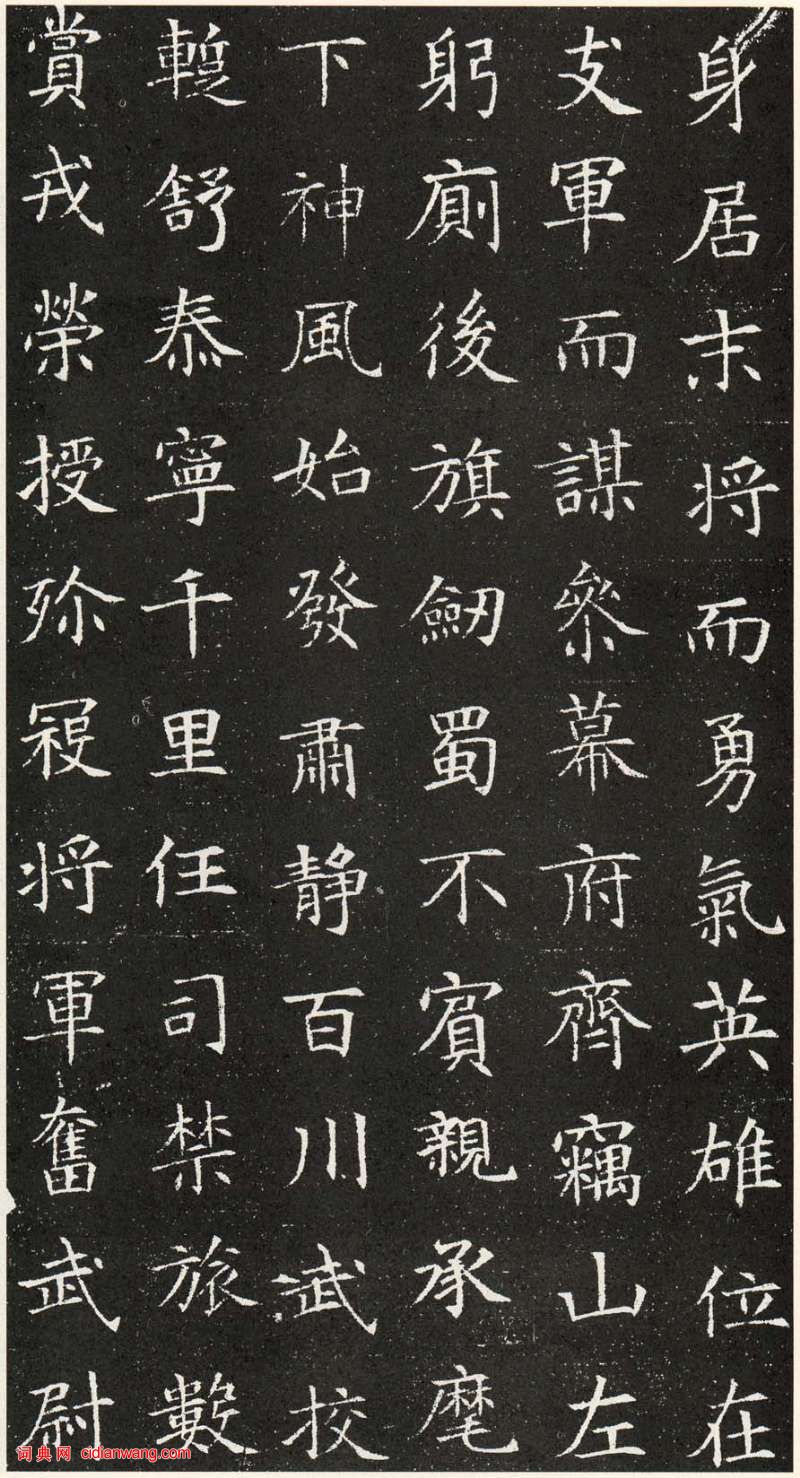 身居末将而勇氣英雄位在
支軍而謀叅幕府齊竊山左
躬廁後旗劒蜀不賓親承麾
下神風始發肅静百川武挍
暫舒泰寧千里任司禁旅數
賞戎榮授殄寇将軍奮武尉
词典网 cidianwang.com